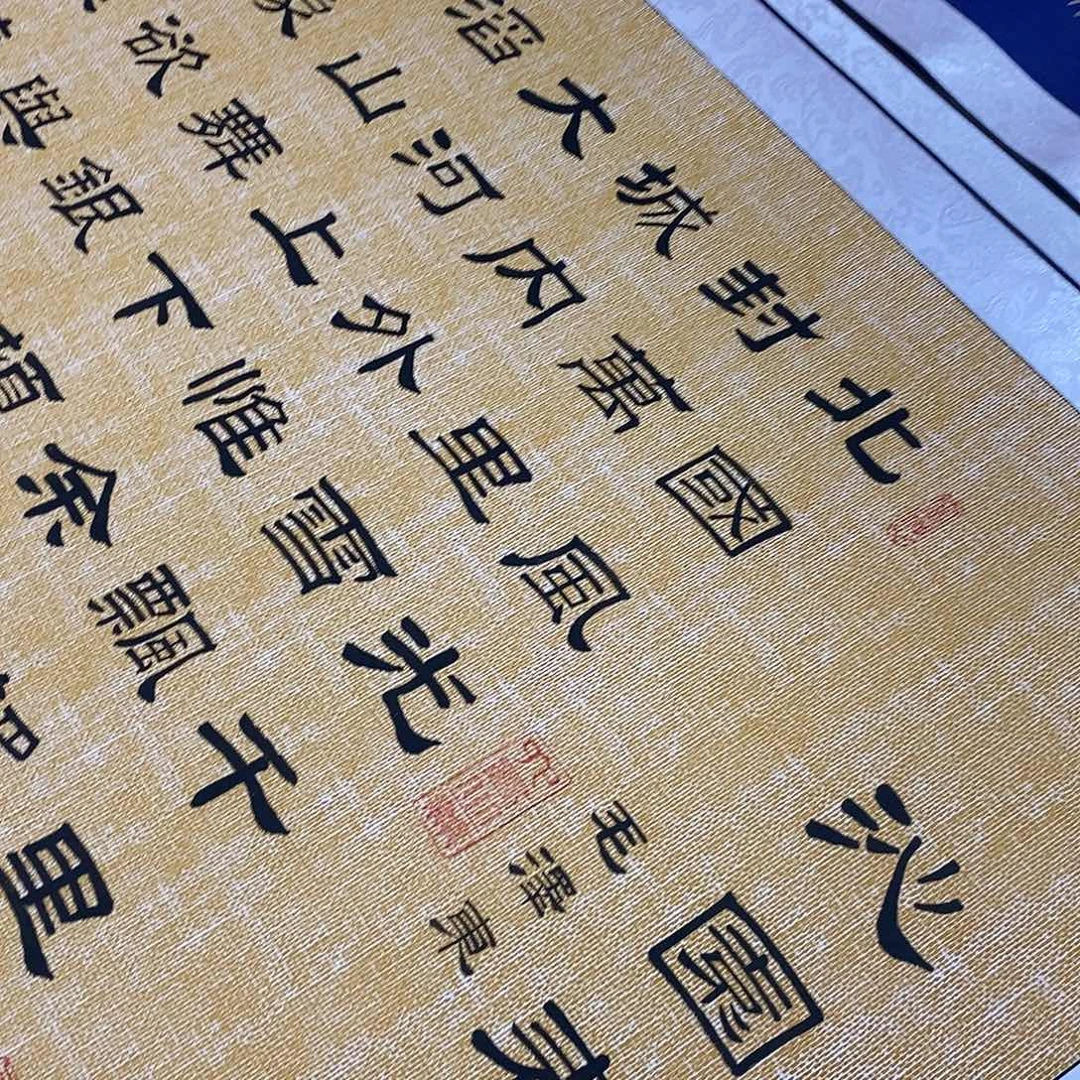 沁園
毛澤東
北國風光千里
封萬里雪飄
城內外惟余
大河上下頓
滔山舞銀
欲與